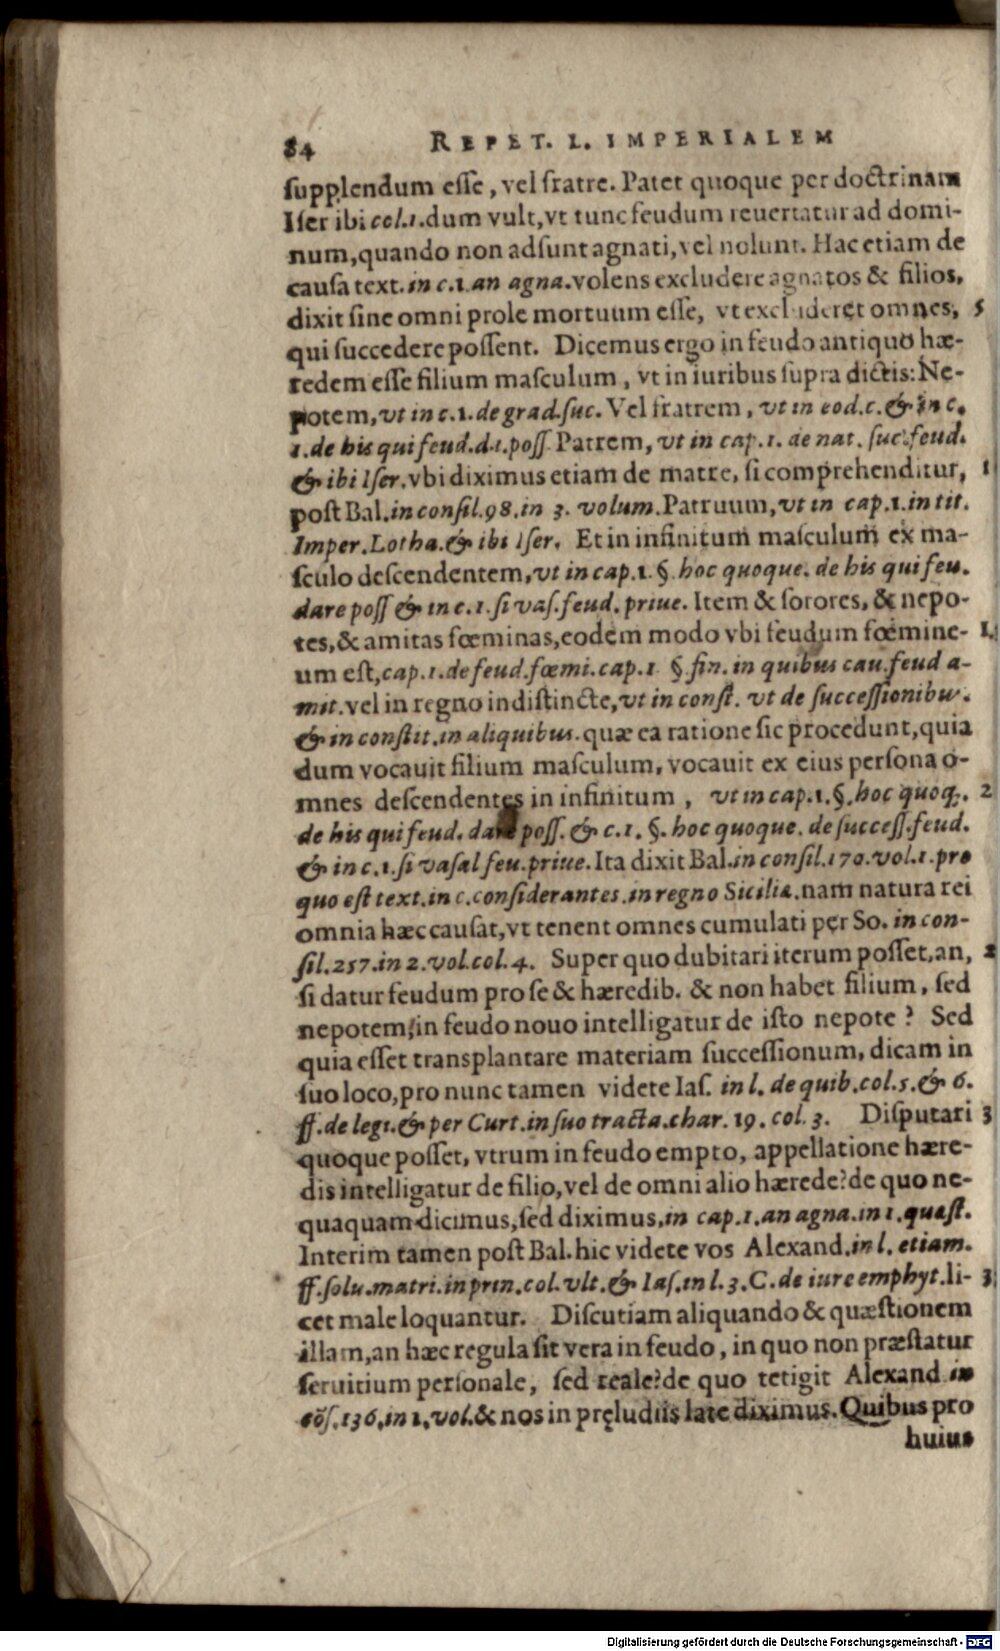 84 REPET. L. IMPERIALEM
ſupplendum eſſe, vel fratre. Patet quoque per doctrinam
Iſer ibi col.1. dum vult, vt tunc feudum reuertatur ad domi-
num, quando non adſunt agnati, vel nolunt. Hac etiam de
cauſa text. in c.1. an agna. volens excludere agnatos & filios,
dixit ſine omni prole mortuum eſſe, vt excluderet omnes, 5
qui ſuccedere poſſent. Dicemus ergo in feudo antiquo hæ-
redem eſſe filium maſculum, vt in iuribus ſupra dictis: Ne-
potem, vt in c.1. de grad.ſuc. Vel fratrem, vt in eod.c. & in c.
1. de his qui feud.d.1.poſſ. Patrem, vt in cap.1. de nat. ſuc.feud.
& ibi Iſer. vbi diximus etiam de matre, ſi comprehenditur, 1
poſt Bal. in conſil.98. in 3. volum. Patruum, vt in cap.1. in tit.
Imper.Lotha. & ibi Iſer. Et in infinitum maſculum ex ma-
ſculo deſcendentem, vt in cap.1. §. hoc quoque. de his qui feu.
dare poſſ & in c.1. ſi vaſ.feud. priue. Item & ſorores, & nepo-
tes, & amitas fœminas, eodem modo vbi feudum fœmine- 1
um eſt, cap.1. de feud.fœmi.cap.1 §.fin. in quibus cau.feud a-
mit. vel in regno indiſtincte, vt in conſt. vt de ſucceſſionibus.
& in conſtit. in aliquibus. quæ ea ratione ſic procedunt, quia
dum vocauit filium maſculum, vocauit ex eius perſona o-
mnes deſcendentes in infinitum, vt in cap.1.§.hoc quoq;. 2
de his qui feud. dare poſſ. & c.1. §. hoc quoque. de ſucceſſ.feud.
& in c.1. ſi vaſal feu.priue. Ita dixit Bal. in conſil.170.vol.1. pro
quo eſt text. in c.conſiderantes. in regno Siciliæ. nam natura rei
omnia hæc cauſat, vt tenent omnes cumulati per So. in con-
ſil.257. in 2.vol.col.4. Super quo dubitari iterum poſſet, an, 2
ſi datur feudum pro ſe & hæredib. & non habet filium, ſed
nepotem, in feudo nouo intelligatur de iſto nepote? Sed
quia eſſet transplantare materiam ſucceſſionum, dicam in
ſuo loco, pro nunc tamen videte Iaſ. in l. de quib.col.5. & 6.
ff. de legi. & per Curt. in ſuo tracta.char. 19. col. 3. Diſputari 3
quoque poſſet, vtrum in feudo empto, appellatione hære-
dis intelligatur de filio, vel de omni alio hærede? de quo ne-
quaquam dicimus, ſed diximus, in cap.1. an agna. in 1. quæſt.
Interim tamen poſt Bal. hic videte vos Alexand. in l. etiam.
ff. ſolu.matri. in prin.col.vlt. & Iaſ. in l.3.C. de iure emphyt. li- 3
cet male loquantur. Diſcutiam aliquando & quæſtionem
illam, an hæc regula ſit vera in feudo, in quo non præſtatur
ſeruitium perſonale, ſed reale? de quo tetigit Alexand in
cõſ.136. in 1. vol. & nos in pręludiis late diximus. Quibus pro
huius
Digitalisierung gefördert durch die Deutsche Forschungsgemeinschaft - DFG